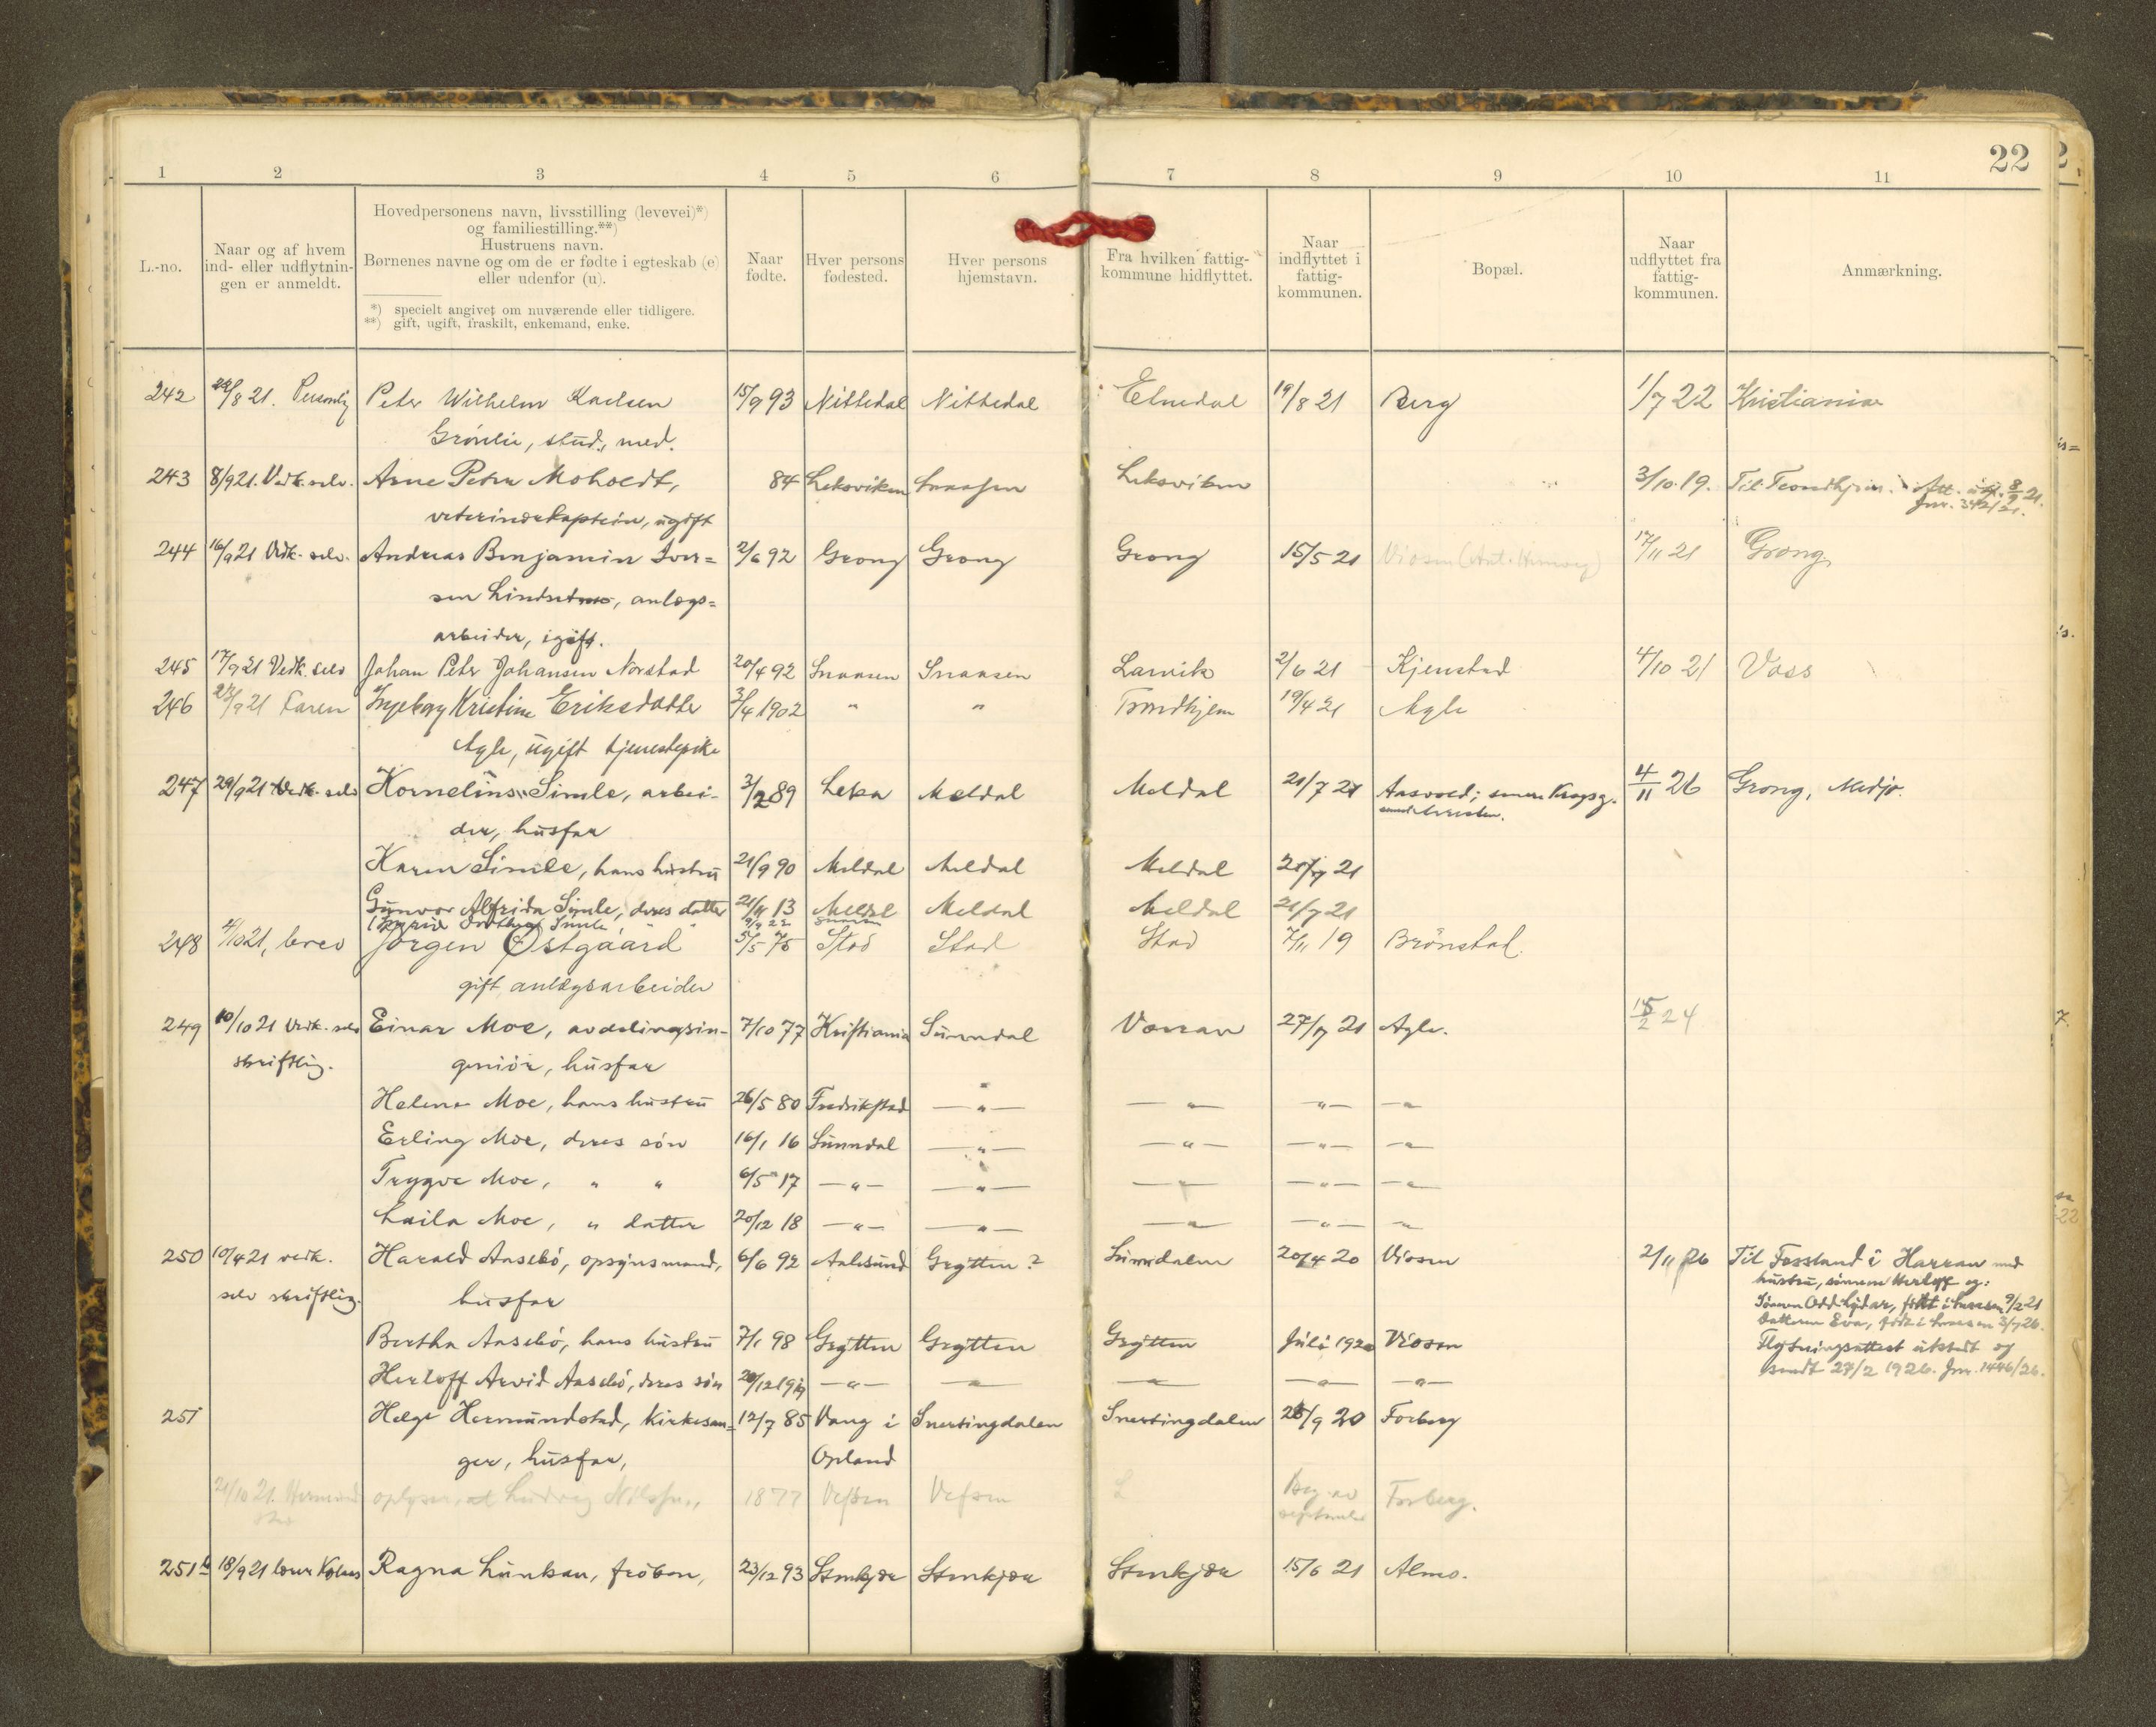 22
1 2 3 4 5 6 7 8 9 10 11
L.-no.
Naar og af hvem
ind- eller udflytnin-
gen er anmeldt.
Hovedpersonens navn, livsstilling (levevei)*)
og familiestilling.**)
Hustruens navn.
Børnenes navne og om de er fødte i egteskab (e)
eller udenfor (u).
*) specielt angivet om nuværende eller tidligere.
**) gift, ugift, fraskilt, enkemand, enke.
Naar
fødte.
Hver persons
fødested.
Hver persons
hjemstavn.
Fra hvilken fattig-
kommune hidflyttet.
Naar
indflyttet i
fattig-
kommunen.
Bopæl.
Naar
udflyttet fra
fattig-
kommunen.
Anmærkning.
242 /8 21. Personlig Peter Wilhelm Karlsen 15/9 93 Nittedal Nittedal Elvedal 19/8 21 Berg 1/7 22 Kristiania
Grönlie, stud. med.
243 8/9 21. Vedk. selv. Arne Peter Moholdt, 84 Leksviken Snaasen Leksviken 3/10 19. Til Trondhjem. Att. 8/9 21.
Jnr. 342/21.
veterinærkaptein, ugift
244 16/9 21 Vedk. selv. Andreas Benjamin Iver= 2/6 92 Grong Grong Grong 15/5 21 Viosen 17/11 21 Grong
sen Lindset, anlægs=
arbeider, igift.
245 17/9 21 Vedk. selv Johan Peter Johansen Norstad 20/4 92 Snaasen Snaasen Larvik 2/6 21 Kjenstad 4/10 21 Voss
246 /9 21 Faren Ingeborg Kristine Eriksdatter 3/4 1902 " " Trondhjem 19/4 21 Agle
Agle, ugift tjenestepike
247 29/9 21 Vedk. selv Kornelius Simle, arbei- 3/2 89 Leka Meldal Meldal 21/7 21 Aasvold; senere 4/11 26 Grong, Medjo.
der, husfar
Karen Simle, hans hustru 21/9 90 Meldal Meldal Meldal 21/7 21
Gunvor Alfrida Simle, deres datter 21/11 13 Meldal Meldal Meldal 21/7 21
Simle 9/9 22 Snaasen
248 /10 21, brev Jörgen Östgaard 5/5 75 Stod Stod Stod 7/11 19 Brönstad.
gift anlægsarbeider
249 10/10 21 Vedk. selv Einar Moe, avdelingsin- 7/10 77 Kristiania Sunndal Værran 27/7 21 Agle. 15/2 24
skriftlig. geniör, husfar
Helene Moe, hans hustru 26/5 80 Fredrikstad —"— —"— —"— —"—
Erling Moe, deres sön 16/1 16 Sunndal —"— —"— —"— —"—
Trygve Moe, " " 6/5 17 —"— —"— —"— —"— —"—
Laila Moe, " datter 20/12 18 —"— —"— —"— —"— —"—
250 10/4 21 vedk. Harald Aasebö, opsynsmand, 6/6 92 Aalesund Grytten? Sunndalen 20/4 20 Viosen 2/11 26 Til Fossland i Harran med
selv skriftlig. husfar hustru, sönnen Herloff og:
Sönnen Odd Lydar, född i Snaasen 9/2 21
Datteren Eva, född i Snaasen 3/7 26.
Bertha Aasebö, hans hustru 7/1 98 Grytten Grytten Grytten Juli 1920 Viosen Flytningsattest utstedt og
Herloff Arvid Aasebö, deres sön 20/12 19 —"— —"— —"— —"— —"— sendt 27/2 1926. Jnr. 1446/26.
251 Helge Hermundstad, Kirkesan= 12/7 85 Vang i Snertingdalen Snertingdalen 25/9 20 Forberg
ger, husfar, Opland
21/10 21. Hermund oplyser, at Ludvig Nilssen, 1877 Vefsen Vefsen L Beg. av Forberg.
stad september
251 b 18/9 21 Ragna Lunkan, fröken, 23/12 93 Stenkjær Stenkjær Stenkjær 15/6 21 Almo.